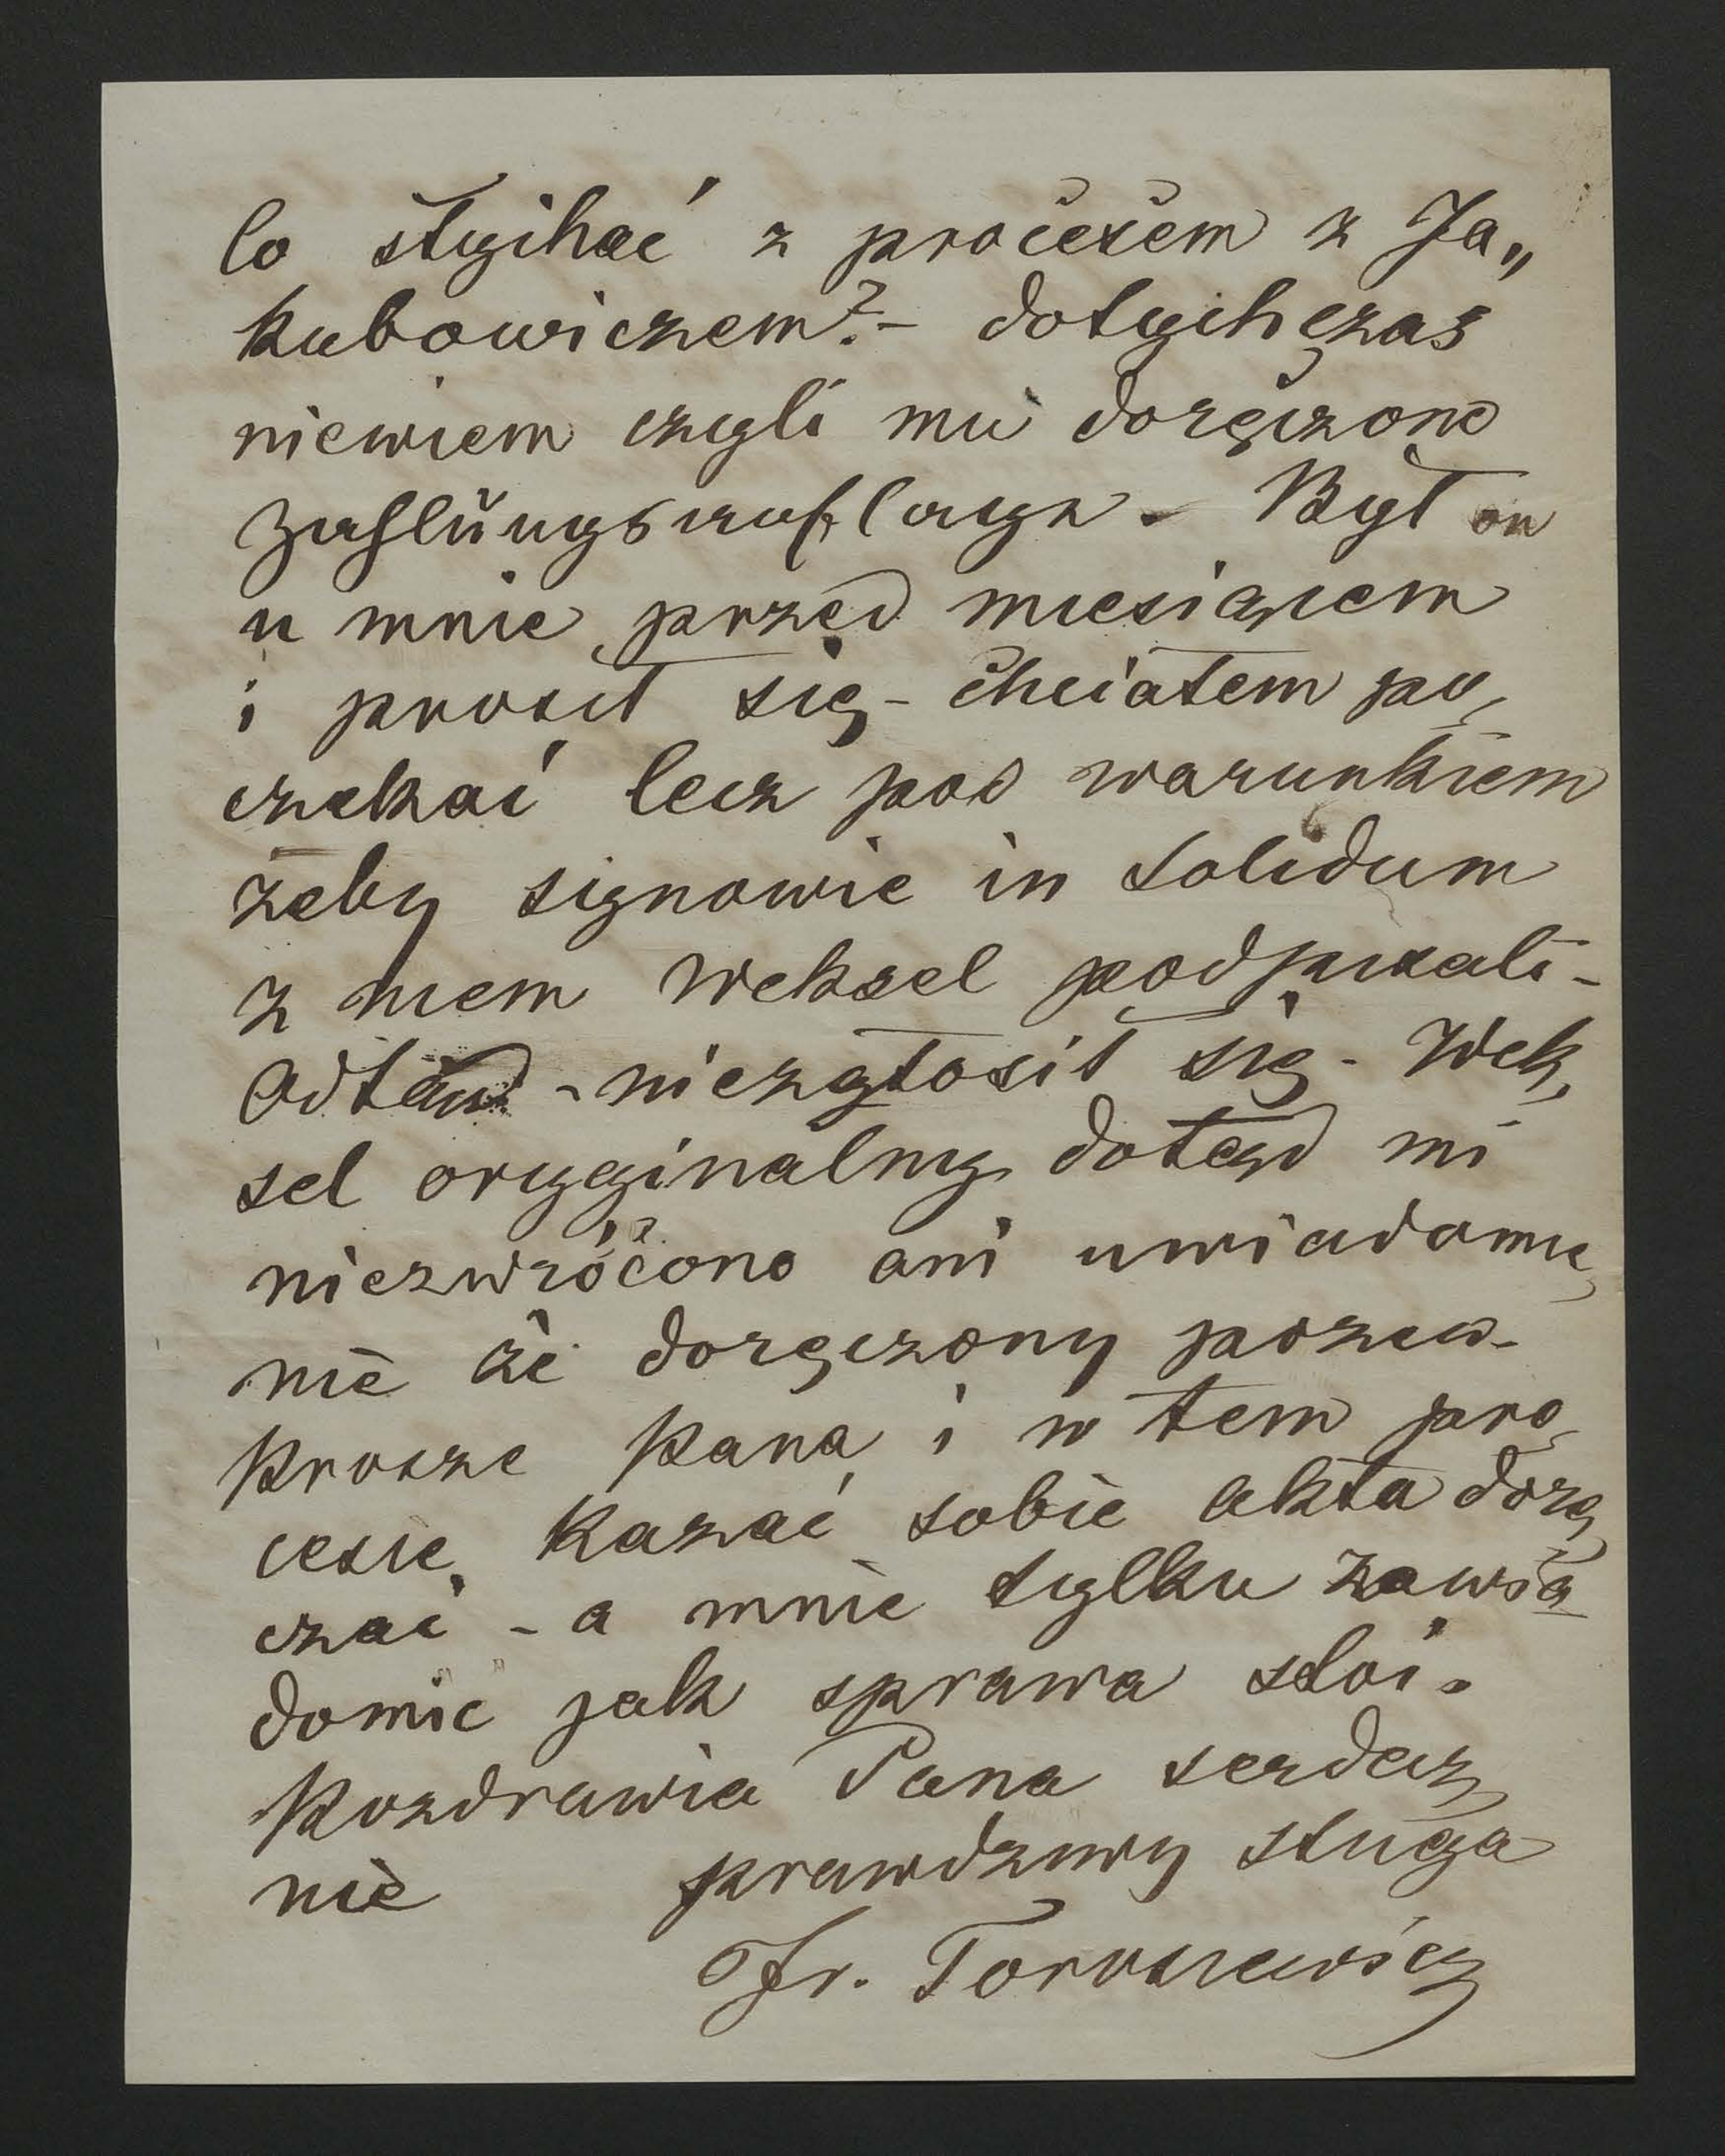 Co słychać z procesem z Ja„
kubowiczem? – dotychczas
niewiem czyli mu doręczono
Zahlungsauflagę. Był on
u mnie przed miesiącem
i prosił się – chciałem po„
czekać lecz pod warunkiem
żeby synowie in solidum
z niem weksel podpisali –
Odtąd – niezgłosił się – Wek„
sel oryginalny dotąd mi
niezwrócono ani uwiadomie„
nie że doręczony pozew –
Proszę Pana i w tem pro„
cesie kazać sobie akta dorę„
czać – a mnie tylko zawia„
domić jak sprawa stoi.
Pozdrawia Pana serdecz„
nie prawdziwy sługa
Fr. Torosiewicz